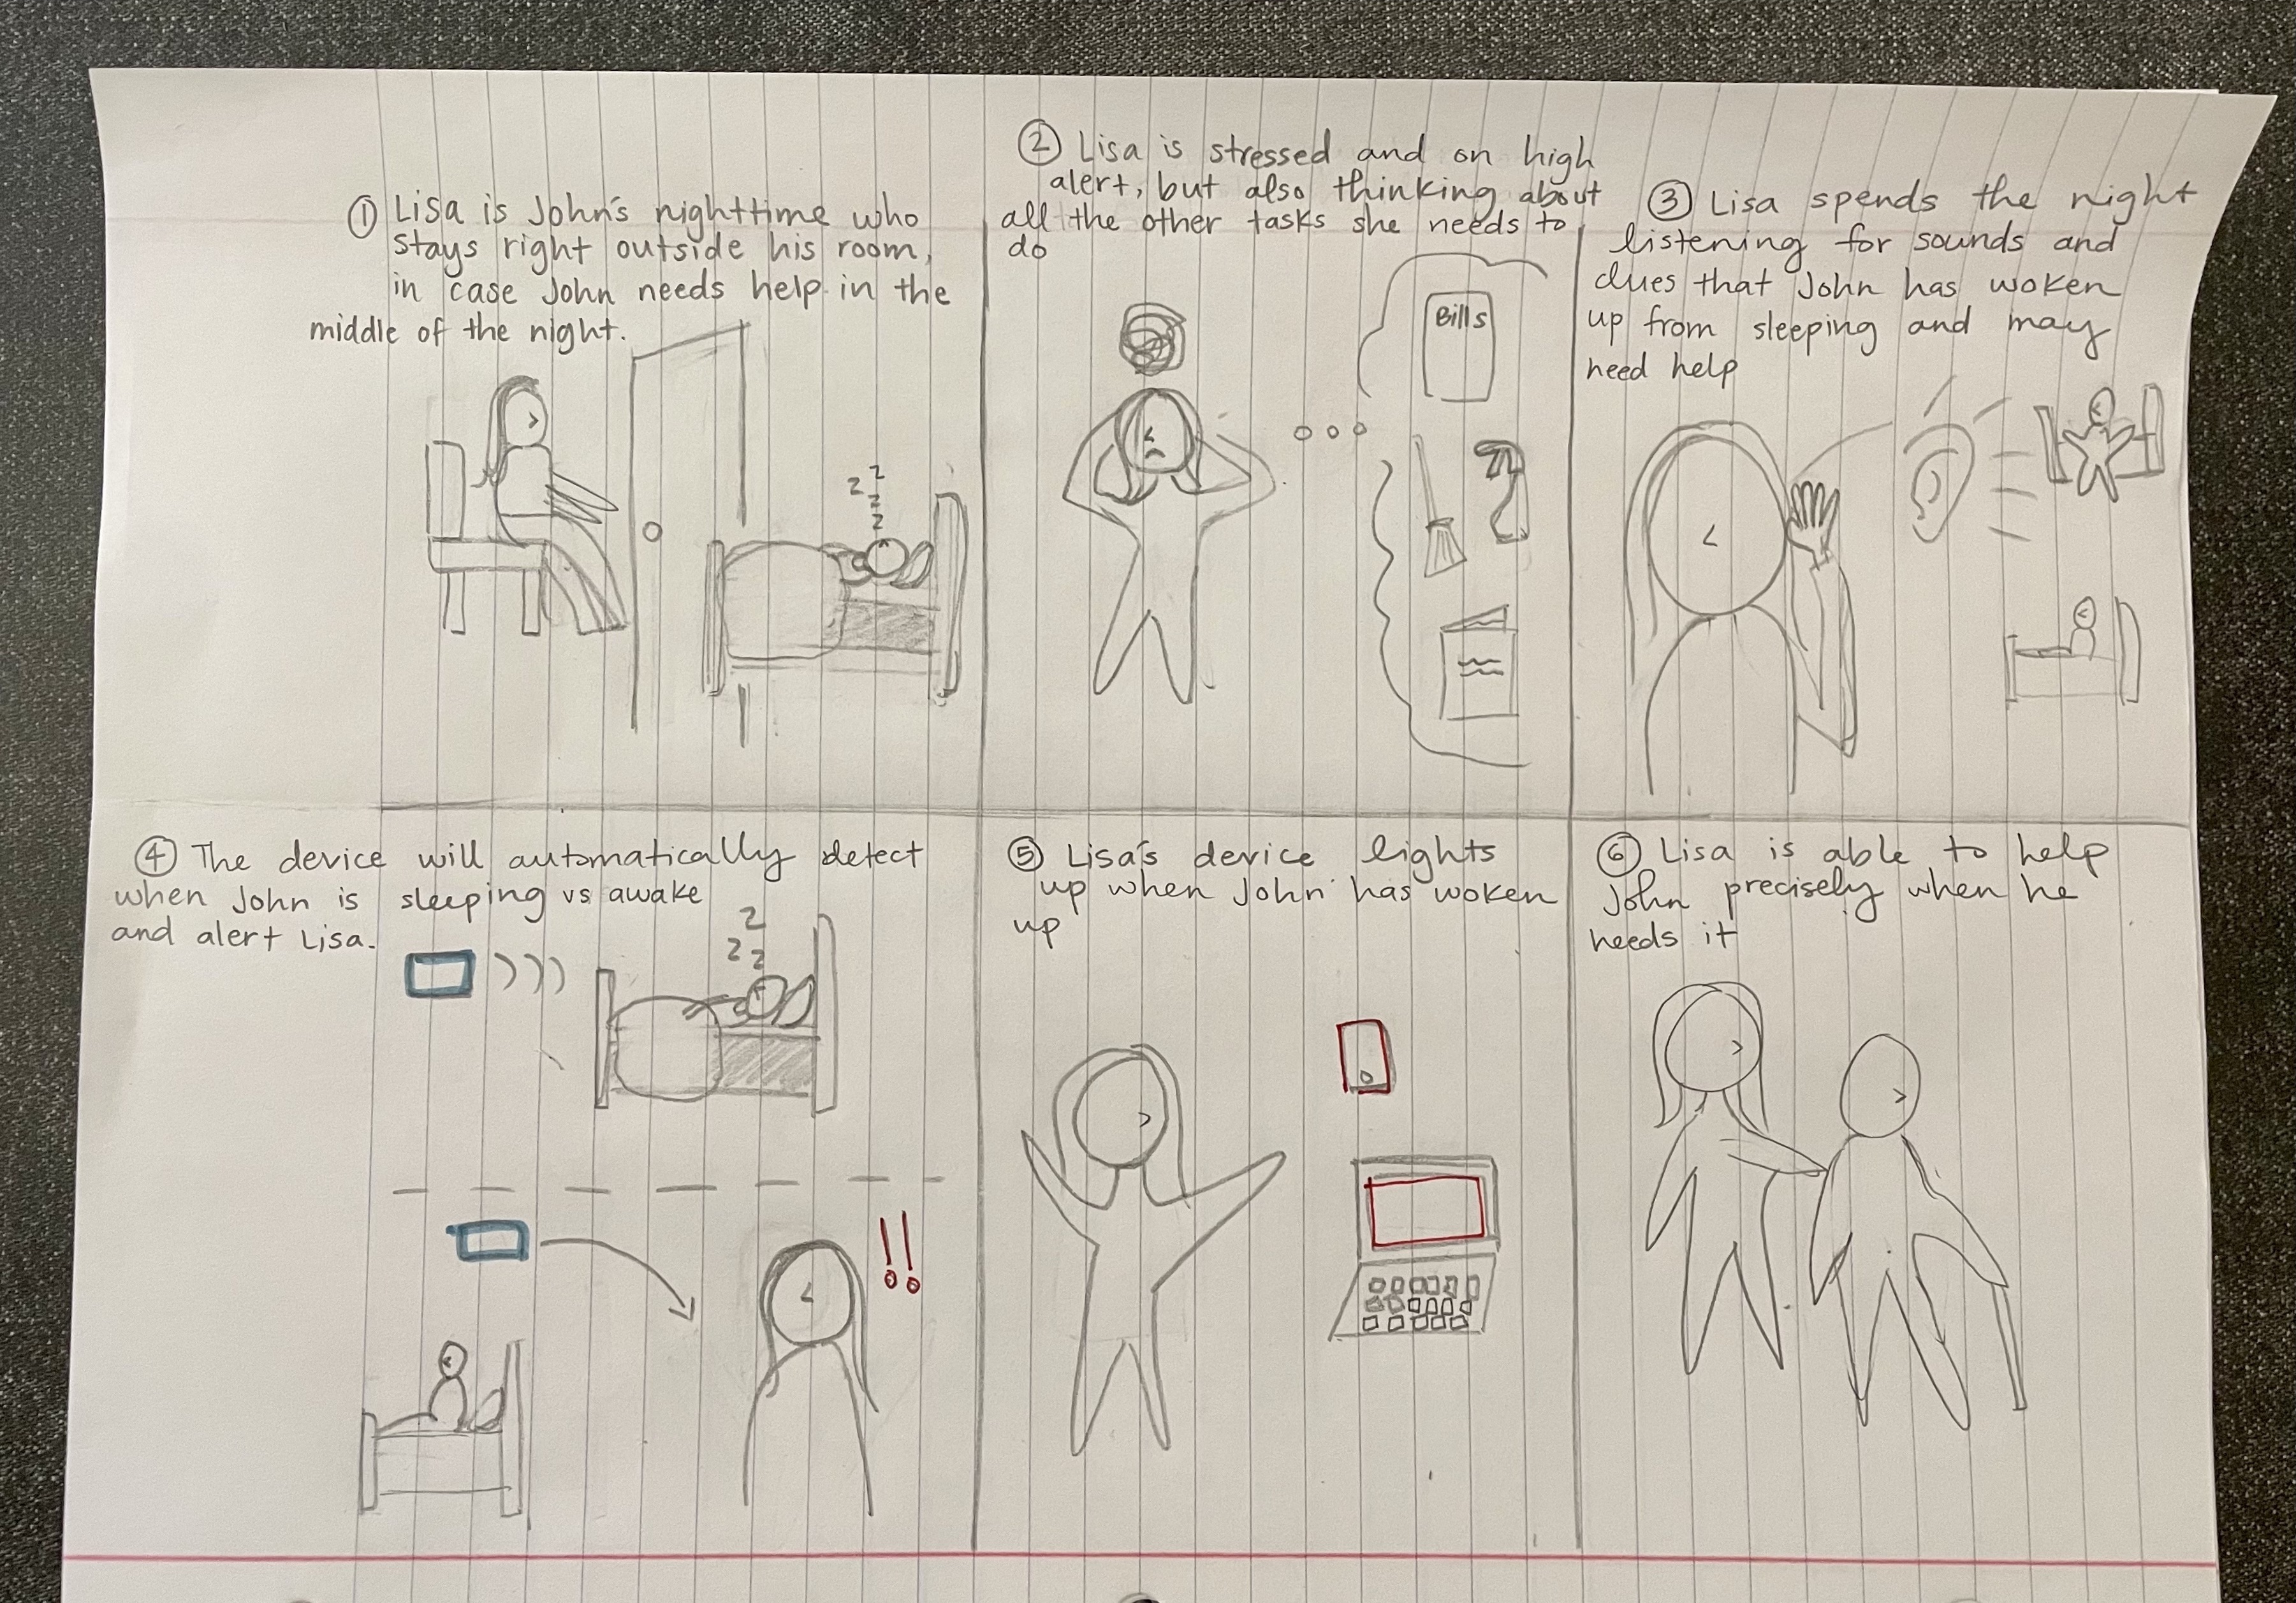 ① Lisa is John's nighttime who
stays right outside his room,
in case John needs help in the
middle of the night.
z
z
z
z
② Lisa is stressed and on high
alert, but also thinking about
all the other tasks she needs to
do
Bills
③ Lisa spends the night
listening for sounds and
clues that John has woken
up from sleeping and may
need help
④ The device will automatically detect
when John is sleeping vs awake
and alert Lisa.
z
z z
!!
⑤ Lisa's device lights
up when John has woken
up
⑥ Lisa is able to help
John precisely when he
needs it